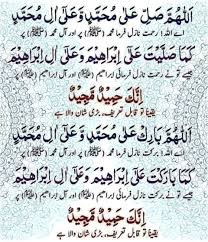 اَللّٰهُمَّ صَلِّ عَلٰى مُحَمَّدٍ وَّعَلٰى اٰلِ مُحَمَّدٍ
اے اللہ! رحمت نازل فرما محمد (ﷺ) پر اور آل محمد (ﷺ) پر
كَمَا صَلَّيْتَ عَلٰى اِبْرَاهِيْمَ وَعَلٰى اٰلِ اِبْرَاهِيْمَ
جیسے تو نے رحمت نازل فرمائی ابراہیم پر اور آل ابراہیم پر
اِنَّكَ حَمِيْدٌ مَّجِيْدٌ
یقیناً تو قابل تعریف، بڑی شان والا ہے
اَللّٰهُمَّ بَارِكْ عَلٰى مُحَمَّدٍ وَّعَلٰى اٰلِ مُحَمَّدٍ
اے اللہ! برکت نازل فرما محمد (ﷺ) پر اور آل محمد (ﷺ) پر
كَمَا بَارَكْتَ عَلٰى اِبْرَاهِيْمَ وَعَلٰى اٰلِ اِبْرَاهِيْمَ
جیسے تو نے برکت نازل فرمائی ابراہیم پر اور آل ابراہیم پر
اِنَّكَ حَمِيْدٌ مَّجِيْدٌ
یقیناً تو قابل تعریف، بڑی شان والا ہے